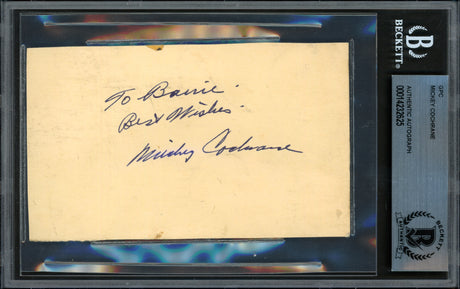 To Barrie.
Best Wishes.
Mickey Cochrane
BECKETT®
B
GPC
MICKEY COCHRANE
AUTHENTIC AUTOGRAPH
00014232625
BECKETT
B
AUTHENTIC